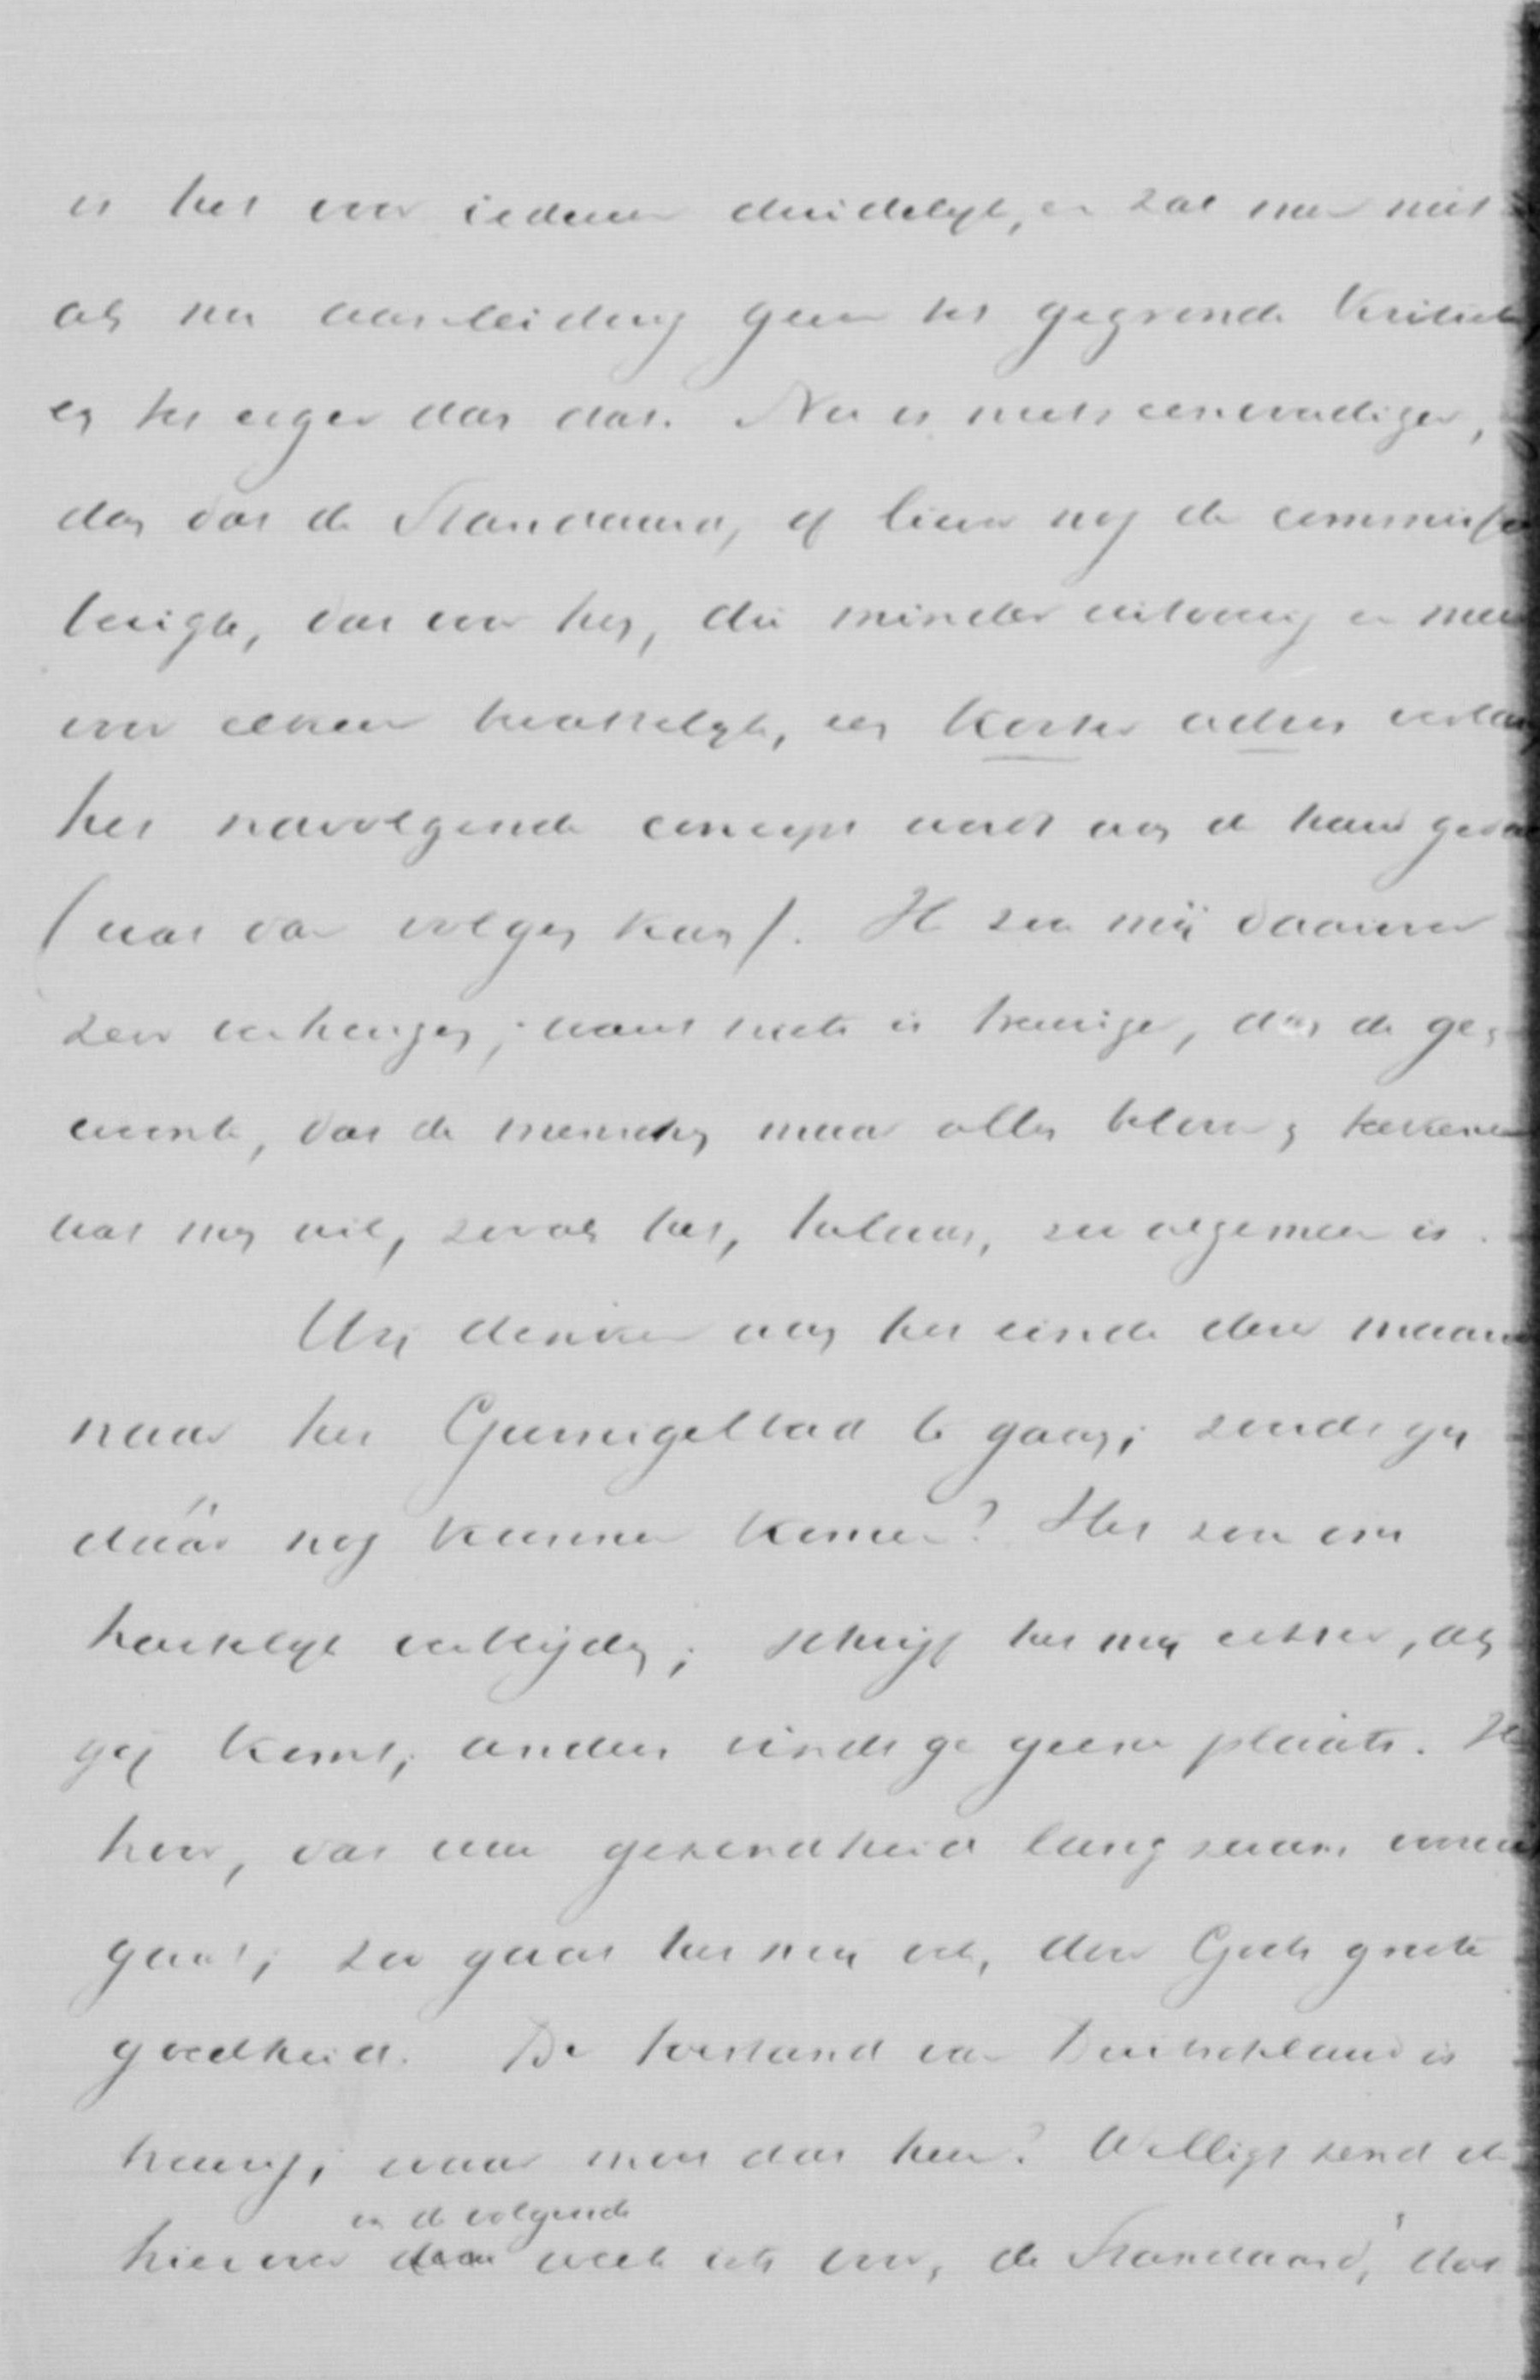 is het voor iedereen duidelijk, en zal men niet
als nu aanleiding geven tot gegronde kritiek
en tot erger dan dat. Nu is niets eenvoudiger,
dan dat de Standaard, of liever nog de commissie
berigte, dat voor hen, die minder uitvoerig en meer
een korter adres
het navolgende concept wordt aan de hand gedaan
(wat dan volgen kan). Het zou mij daarover
zeer verheugen; want niets is treuriger, dan de ge-
meente, dat de menschen maar alles
wat men wil, zooals het, helaas, zoo algemeen is.
Wij denken aan het einde dezer maand
naar het Gurnigelbad te gaan; zoudt gij
dáár nog kunnen komen? Het zou ons
hartelijk verblijden; schrijf het mij echter, als
gij komt, anders vindt ge geene plaats. Ik
hoor, dat uw gezondheid langzaam vooruit
gaat; zoo gaat het mij ook, door Gods groote
goedheid. De toestand van Duitschland is
treurig; waar moet dat heen? Welligt zend ik
in de volgende
hierover week iets voor de Standaard, dat